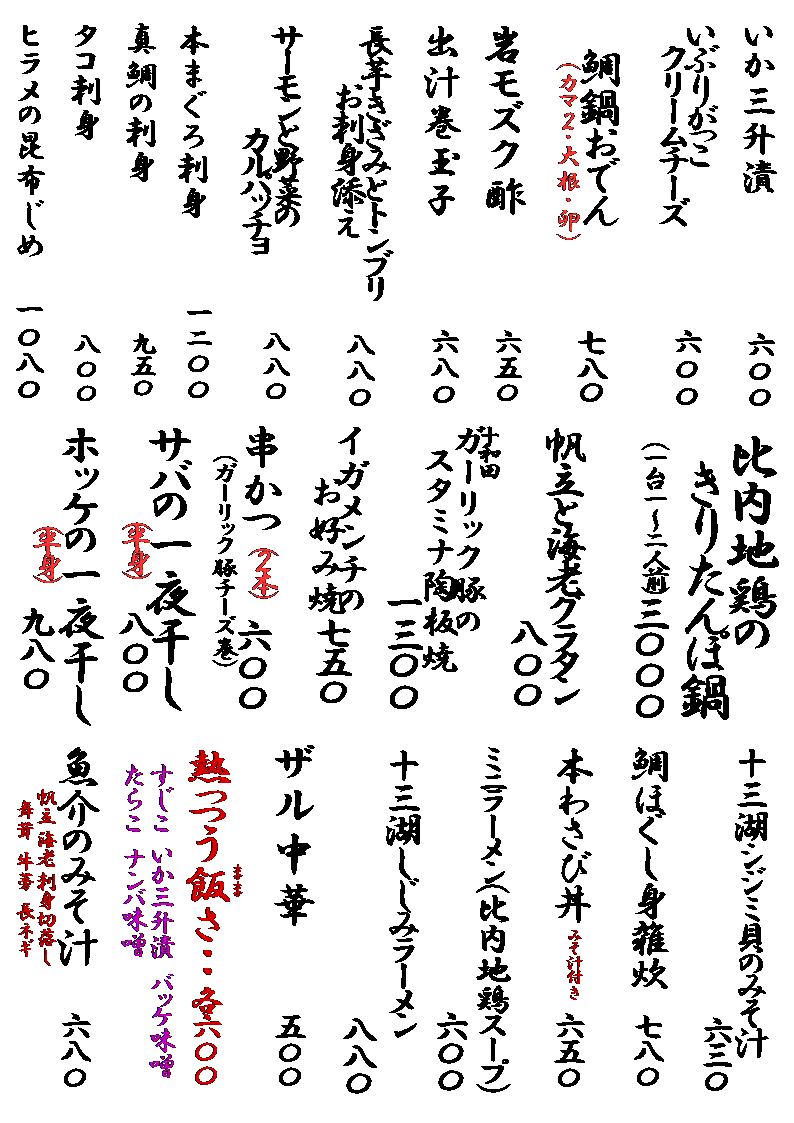 いか三升漬
六〇〇
いぶりがっこ
クリームチーズ
六〇〇
鯛鍋おでん
(カマ2・大根・卵)
七八〇
岩モズク酢
六五〇
出汁巻玉子
六八〇
長芋きざみとトンブリ
お刺身添え
八八〇
サーモンと野菜の
カルパッチョ
八八〇
本まぐろ刺身
一二〇〇
真鯛の刺身
九五〇
タコ刺身
八〇〇
ヒラメの昆布じめ
一〇八〇
比内地鶏の
きりたんぽ鍋
(一台一~二人前)
三〇〇〇
帆立と海老グラタン
八〇〇
十和田
ガーリック豚の
スタミナ陶板焼
一三〇〇
イガメンチの
お好み焼
七五〇
串かつ(2本)
(ガーリック豚チーズ巻)
六〇〇
サバの一夜干し
(半身)
八〇〇
ホッケの一夜干し
(半身)
九八〇
十三湖シジミ貝のみそ汁
六三〇
鯛ほぐし身雑炊
七八〇
本わさび丼
みそ汁付き
六五〇
ミニラーメン(比内地鶏スープ)
六〇〇
十三湖しじみラーメン
八八〇
ザル中華
五〇〇
熱っつう飯さ・・各六〇〇
まま
すじこ いか三升漬 バッケ味噌
たらこ ナンバ味噌
魚介のみそ汁
帆立 海老 刺身切落し
舞茸 牛蒡 長ネギ
六八〇